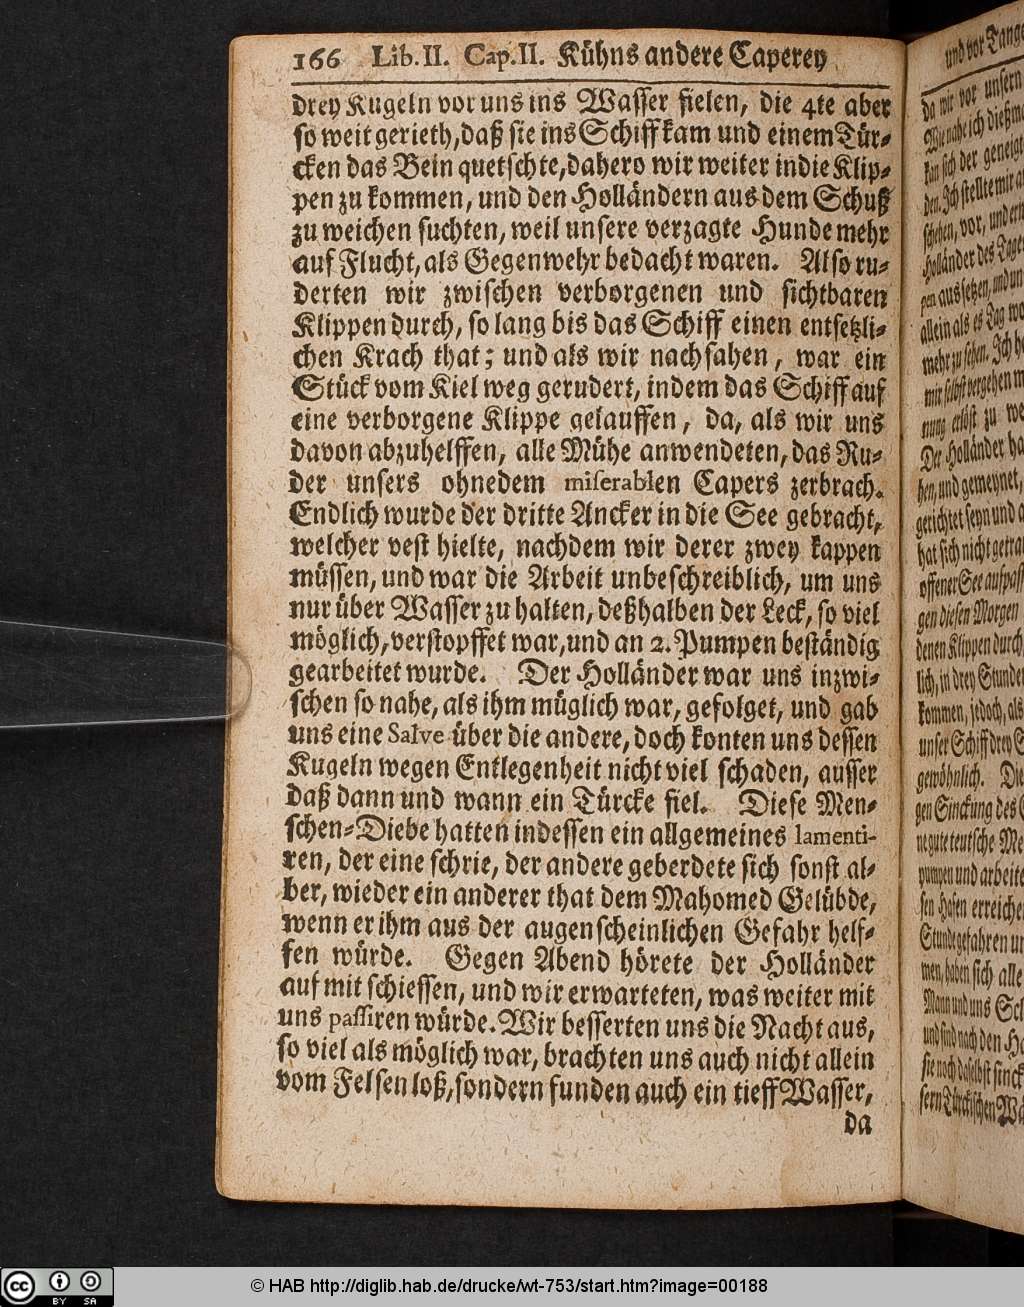 166 Lib. II. Cap. II. Kühns andere Caperey
drey Kugeln vor uns ins Wasser fielen, die 4te aber
so weit gerieth, daß sie ins Schiff kam und einem Tür-
cken das Bein quetschte, dahero wir weiter in die Klip-
pen zu kommen, und den Holländern aus dem Schuß
zu weichen suchten, weil unsere verzagte Hunde mehr
auf Flucht, als Gegenwehr bedacht waren. Also ru-
derten wir zwischen verborgenen und sichtbaren
Klippen durch, so lang bis das Schiff einen entsetzli-
chen Krach that; und als wir nachsahen, war ein
Stück vom Kiel weg gerudert, indem das Schiff auf
eine verborgene Klippe gelauffen, da, als wir uns
davon abzuhelffen, alle Mühe anwendeten, das Ru-
der unsers ohnedem miserablen Capers zerbrach.
Endlich wurde der dritte Ancker in die See gebracht,
welcher vest hielte, nachdem wir derer zwey kappen
müssen, und war die Arbeit unbeschreiblich, um uns
nur über Wasser zu halten, deßhalben der Leck, so viel
möglich, verstopffet war, und an 2. Pumpen beständig
gearbeitet wurde. Der Holländer war uns inzwi-
schen so nahe, als ihm müglich war, gefolget, und gab
uns eine Salve über die andere, doch konten uns dessen
Kugeln wegen Entlegenheit nicht viel schaden, ausser
daß dann und wann ein Türcke fiel. Diese Men-
schen-Diebe hatten indessen ein allgemeines lamenti-
ren, der eine schrie, der andere geberdete sich sonst al-
ber, wieder ein anderer that dem Mahomed Gelübde,
wenn er ihm aus der augenscheinlichen Gefahr helf-
fen würde. Gegen Abend hörete der Holländer
auf mit schiessen, und wir erwarteten, was weiter mit
uns passiren würde. Wir besserten uns die Nacht aus,
so viel als möglich war, brachten uns auch nicht allein
vom Felsen loß, sondern funden auch ein tieff Wasser,
da
und vor Tange
da wir vor unsern
Wie nahe ich dießma
kan sich der geneigt
den. Ich stellte mir a
schehen, vor, und er
Holländer des Tages
pen aussetzen, und un
allein als es Tag wo
mehr zu sehen. Ich h
mir selbst vergehen m
nung erlöst zu we
Der Holländer ha
hen, und gemeynet,
gerichtet seyn und a
hat sich nicht getra
offener See aufpass
gen diesen Morgen
denen Klippen durch
lich, in drey Stunde
kommen, jedoch, als
unser Schiff drey S
gewöhnlich. Die
gen Sinckung des
ne gute teutsche Me
pumpen und arbeite
sen Hafen erreiche
Stunde gefahren un
men, haben sich alle
Mann und uns Scl
und sind nach den Ho
sie noch daselbst sinck
sern Türckischen Wa
© HAB http://diglib.hab.de/drucke/wt-753/start.htm?image=00188
cc BY SA